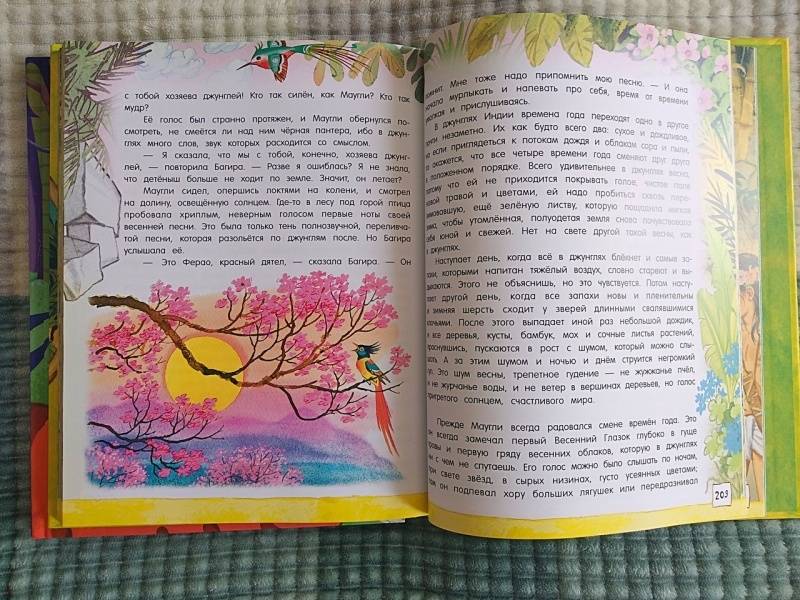 с тобой хозяева джунглей! Кто так силён, как Маугли? Кто так
мудр?
Её голос был странно протяжен, и Маугли обернулся по-
смотреть, не смеётся ли над ним чёрная пантера, ибо в джун-
глях много слов, звук которых расходится со смыслом.
— Я сказала, что мы с тобой, конечно, хозяева джунг-
лей, — повторила Багира. — Разве я ошиблась? Я не знала,
что детёныш больше не ходит по земле. Значит, он летает?
Маугли сидел, опершись локтями на колени, и смотрел
на долину, освещённую солнцем. Где-то в лесу под горой птица
пробовала хриплым, неверным голосом первые ноты своей
весенней песни. Это была только тень полнозвучной, переливча-
той песни, которая разольётся по джунглям после. Но Багира
услышала её.
— Это Ферао, красный дятел, — сказала Багира. — Он
помнит. Мне тоже надо припомнить мою песню. — И она
начала мурлыкать и напевать про себя, время от времени
умолкая и прислушиваясь.
В джунглях Индии времена года переходят одно в другое
почти незаметно. Их как будто всего два: сухое и дождливое,
но если приглядеться к потокам дождя и облакам сора и пыли,
то окажется, что все четыре времени года сменяют друг друга
в положенном порядке. Всего удивительнее в джунглях весна,
потому что ей не приходится покрывать голое, чистое поле
новой травой и цветами, ей надо пробиться сквозь пере-
зимовавшую, ещё зелёную листву, которую пощадила мягкая
зима, чтобы утомлённая, полуодетая земля снова почувствовала
себя юной и свежей. Нет на свете другой такой весны, как
в джунглях.
Наступает день, когда всё в джунглях блёкнет и самые за-
пахи, которыми напитан тяжёлый воздух, словно стареют и вы-
дыхаются. Этого не объяснишь, но это чувствуется. Потом насту-
пает другой день, когда все запахи новы и пленительны
и зимняя шерсть сходит у зверей длинными свалявшимися
клочьями. После этого выпадает иной раз небольшой дождик,
и все деревья, кусты, бамбук, мох и сочные листья растений,
проснувшись, пускаются в рост с шумом, который можно слы-
шать. А за этим шумом и ночью и днём струится негромкий
гул. Это шум весны, трепетное гудение — не жужжанье пчёл,
и не журчанье воды, и не ветер в вершинах деревьев, но голос
пригретого солнцем, счастливого мира.
Прежде Маугли всегда радовался смене времён года. Это
он всегда замечал первый Весенний Глазок глубоко в гуще
травы и первую гряду весенних облаков, которую в джунглях
ни с чем не спутаешь. Его голос можно было слышать по ночам,
при свете звёзд, в сырых низинах, густо усеянных цветами;
там он подпевал хору больших лягушек или передразнивал
203